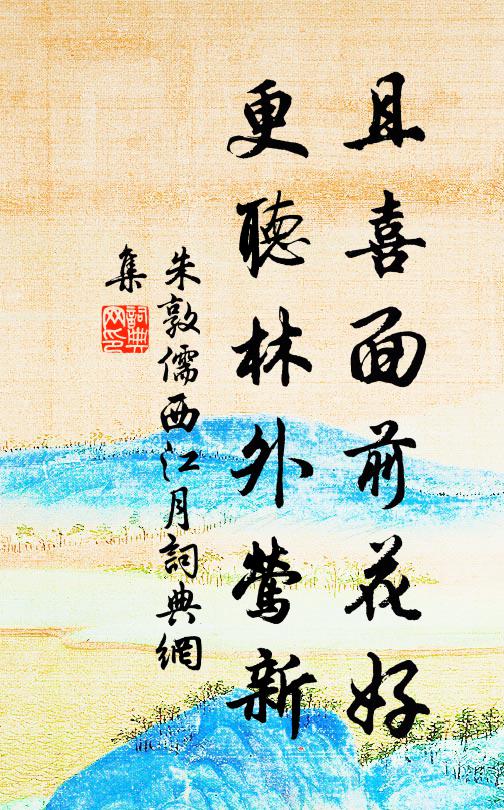 且喜面前花好
更聽林外鶯新
朱敦儒西江月詞典網
集
詞典网印